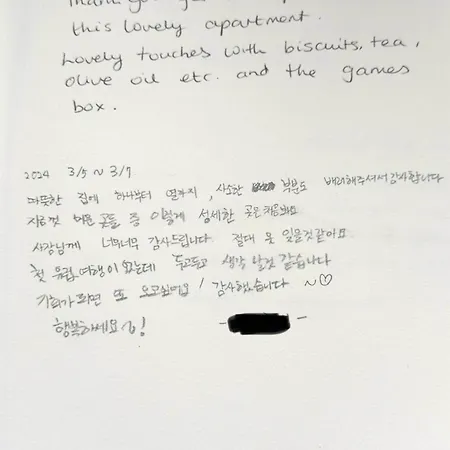 this lovely apartment.
Lovely touches with biscuits, tea,
olive oil etc. and the games
box.
2024 3/5 ~ 3/7
따뜻한 집에 하나부터 열까지, 사소한 부분도 배려해주셔서 감사합니다
지금껏 곳들 중 이렇게 섬세한 곳은 처음봐요
사장님께 너무너무 감사드립니다 절대 못 잊을것같아요
첫 유럽 여행이었는데 두고두고 생각 날것 같습니다
기회가 되면 또 오고싶어요! 감사했습니다 ~♡
행복하세요~!